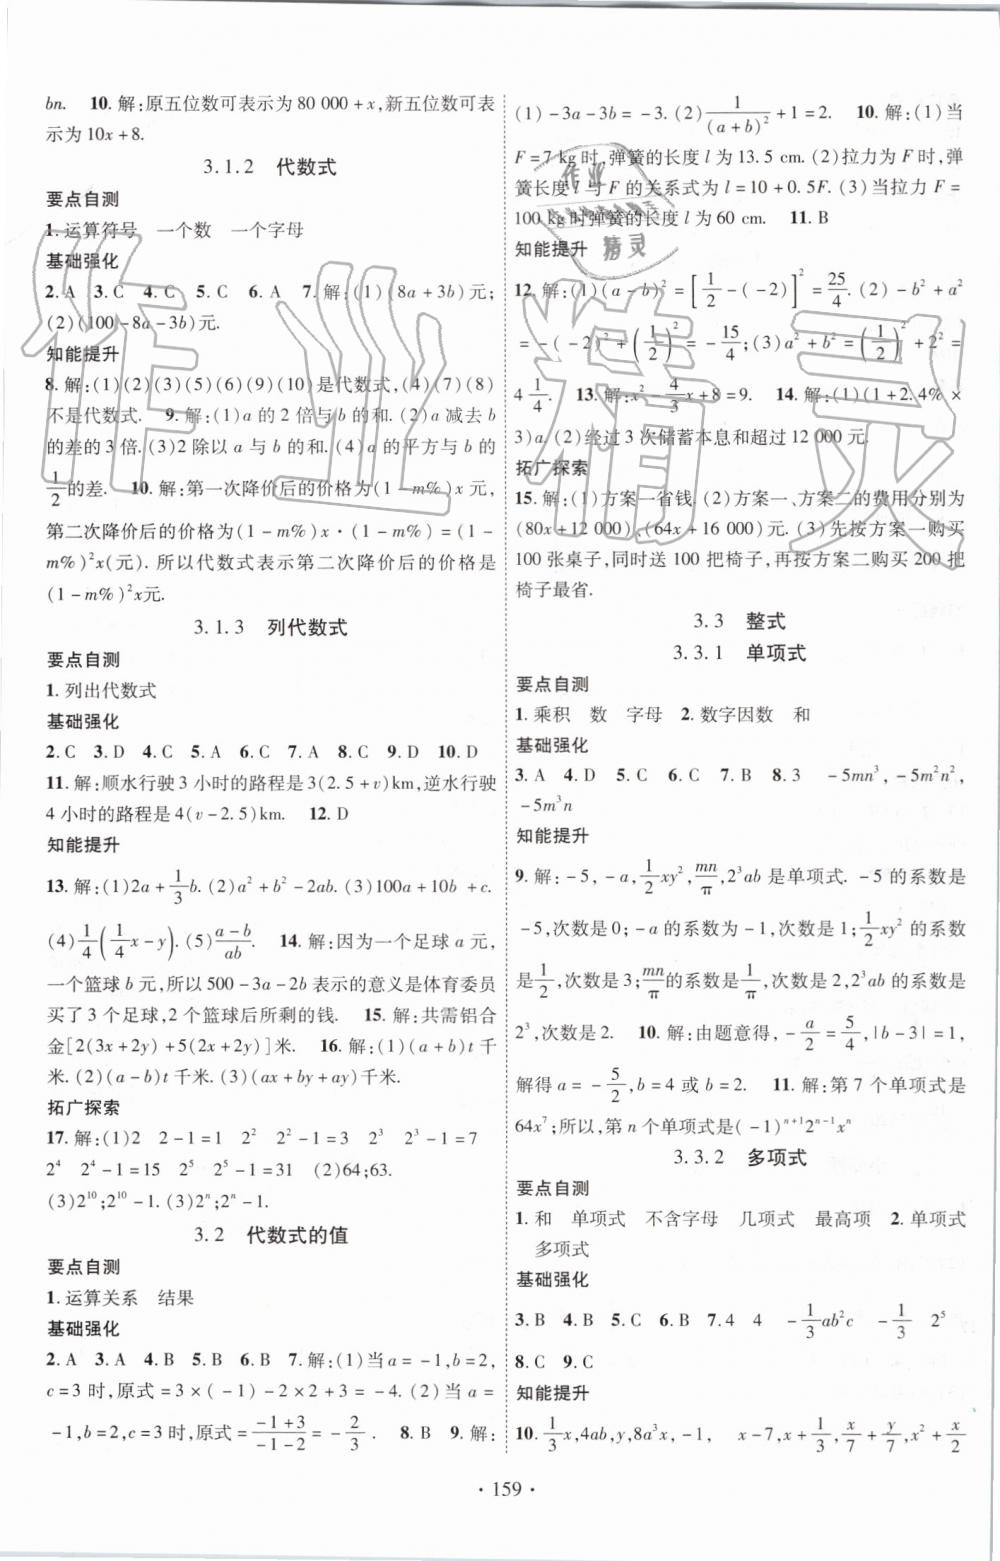 bn. 10. 解:原五位数可表示为 80 000 + x,新五位数可表
示为 10x + 8.
3.1.2 代数式
要点自测
1. 运算符号 一个数 一个字母
基础强化
2. A 3. C 4. C 5. C 6. A 7. 解:(1)(8a + 3b)元;
(2)(100 - 8a - 3b)元.
知能提升
8. 解:(1)(2)(3)(5)(6)(9)(10)是代数式,(4)(7)(8)
不是代数式. 9. 解:(1)a 的 2 倍与 b 的和. (2)a 减去 b
的差的 3 倍. (3)2 除以 a 与 b 的和. (4)a 的平方与 b 的
1/2 的差. 10. 解:第一次降价后的价格为(1 - m%)x 元,
第二次降价后的价格为(1 - m%)x · (1 - m%) = (1 -
m%)²x(元). 所以代数式表示第二次降价后的价格是
(1 - m%)²x元.
3.1.3 列代数式
要点自测
1. 列出代数式
基础强化
2. C 3. D 4. C 5. A 6. C 7. A 8. C 9. D 10. D
11. 解:顺水行驶 3 小时的路程是 3(2.5 + v)km,逆水行驶
4 小时的路程是 4(v - 2.5)km. 12. D
知能提升
13. 解:(1)2a + 1/3 b. (2)a² + b² - 2ab. (3)100a + 10b + c.
(4) 1/4 (1/4 x - y). (5) (a - b)/ab. 14. 解:因为一个足球 a 元,
一个篮球 b 元,所以 500 - 3a - 2b 表示的意义是体育委员
买了 3 个足球,2 个篮球后所剩的钱. 15. 解:共需铝合
金[2(3x + 2y) + 5(2x + 2y)]米. 16. 解:(1)(a + b)t 千
米. (2)(a - b)t 千米. (3)(ax + by + ay)千米.
拓广探索
17. 解:(1)2 2 - 1 = 1 2² 2² - 1 = 3 2³ 2³ - 1 = 7
2⁴ 2⁴ - 1 = 15 2⁵ 2⁵ - 1 = 31 (2)64;63.
(3)2¹⁰;2¹⁰ - 1. (3)2ⁿ;2ⁿ - 1.
3.2 代数式的值
要点自测
1. 运算关系 结果
基础强化
2. A 3. A 4. B 5. B 6. B 7. 解:(1)当 a = -1,b = 2,
c = 3 时,原式 = 3 × ( - 1) - 2 + 3 = -4. (2)当 a =
-1,b = 2,c = 3 时,原式 = (-1 + 3)/(-1 - 2) = - 2/3 . 8. B 9. 解:
(1) -3a - 3b = -3. (2) 1/(a + b)² + 1 = 2. 10. 解:(1)当
F = 7 kg 时,弹簧的长度 l 为 13.5 cm. (2)拉力为 F 时,弹
簧长度 l 与 F 的关系式为 l = 10 + 0.5F. (3)当拉力 F =
100 kg 时弹簧的长度 l 为 60 cm. 11. B
知能提升
12. 解:(1)(a - b)² = [1/2 - (-2)]² = 25/4. (2) - b² + a²
= -(-2)² + (1/2)² = - 15/4; (3)a² + b² = (1/2)² + 2² =
4 1/4. 13. 解:x² - 4/3 x + 8 = 9. 14. 解:(1)(1 + 2.4% ×
3)a. (2)经过 3 次储蓄本息和超过 12 000 元.
拓广探索
15. 解:(1)方案一省钱. (2)方案一、方案二的费用分别为
(80x + 12 000),(64x + 16 000)元. (3)先按方案一购买
100 张桌子,同时送 100 把椅子,再按方案二购买 200 把
椅子最省.
3.3 整式
3.3.1 单项式
要点自测
1. 乘积 数 字母 2. 数字因数 和
基础强化
3. A 4. D 5. C 6. C 7. B 8. 3 -5mn³, -5m²n²,
-5m³n
知能提升
9. 解: -5, -a, 1/2 xy², mn/π, 2³ab 是单项式. -5 的系数是
-5,次数是 0; -a 的系数为 -1,次数是 1; 1/2 xy² 的系数
是 1/2,次数是 3; mn/π 的系数是 1/π,次数是 2,2³ab 的系数是
2³,次数是 2. 10. 解:由题意得, - a/2 = 5/4, |b - 3| = 1,
解得 a = - 5/2, b = 4 或 b = 2. 11. 解:第 7 个单项式是
64x⁷;所以,第 n 个单项式是( -1)ⁿ⁺¹2ⁿ⁻¹xⁿ
3.3.2 多项式
要点自测
1. 和 单项式 不含字母 几项式 最高项 2. 单项式
多项式
基础强化
3. B 4. B 5. C 6. B 7. 4 4 - 1/3 ab²c - 1/3 2⁵
8. C 9. C
知能提升
10. 1/3 x,4ab,y,8a³x, -1, x - 7,x + 1/3, x/7 + y/7, x² + x/2
· 159 ·
作业精灵
作业
精灵